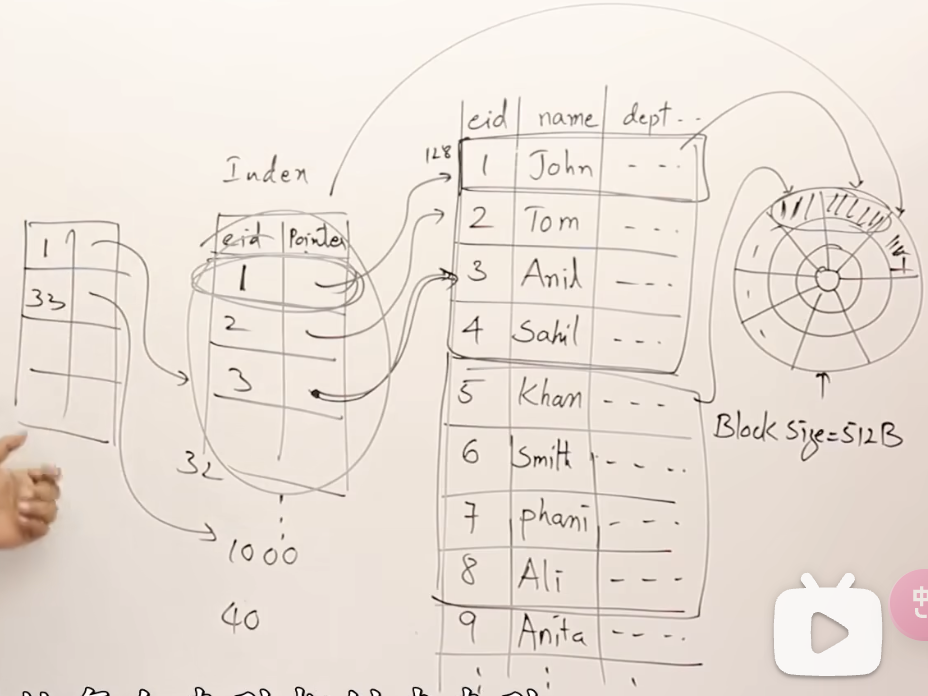 Index
1
33
eid Pointer
1
2
3
32
1000
40
128
eid name dept ..
1 John - - -
2 Tom - - -
3 Anil - - -
4 Sahil - - -
5 Khan - - -
6 Smith - - - -
7 phani - - -
8 Ali - - -
9 Anita - - - -
Block Size=512B
中